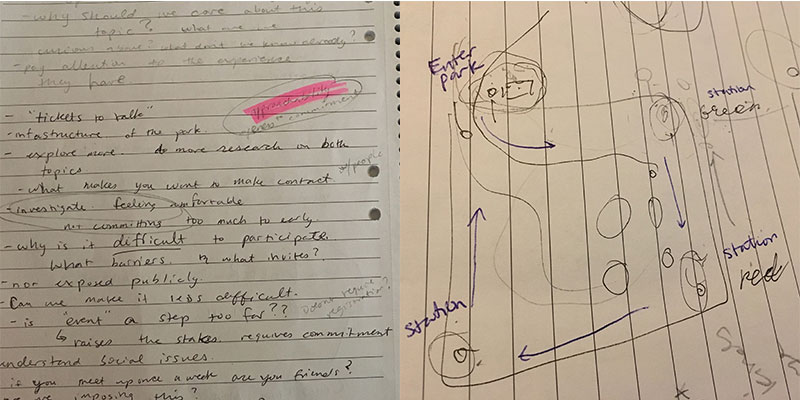 - why should we care about this
topic? what are we
curious about? what don't we know already?
- pay attention to the experience
they have
approachability
"press" commitment
- "tickets to talk"
- infastructure of the park.
- explore more. do more research on both
topics
w/people
- what makes you want to make contact
- investigate feeling comfortable
not committing too much to early
- why is it difficult to participate.
What barriers. & what invites?
- not exposed publicly
- Can we make it less difficult.
Doesn't require
registration?
- is "event" a step too far??
↳ raises the stakes. requires commitment
understand social issues.
if you meet up once a week are you friends?
imposing this?
Enter
park
station
Green
station
red
station